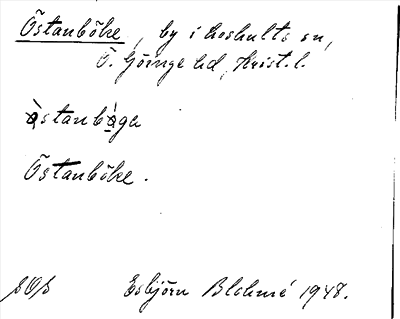 Östanböke, by i Loshults sn,
Ö. Göinge hd, Krist. l.
östanböga
Östanböke.
SOS
Esbjörn Blohmé 1948.